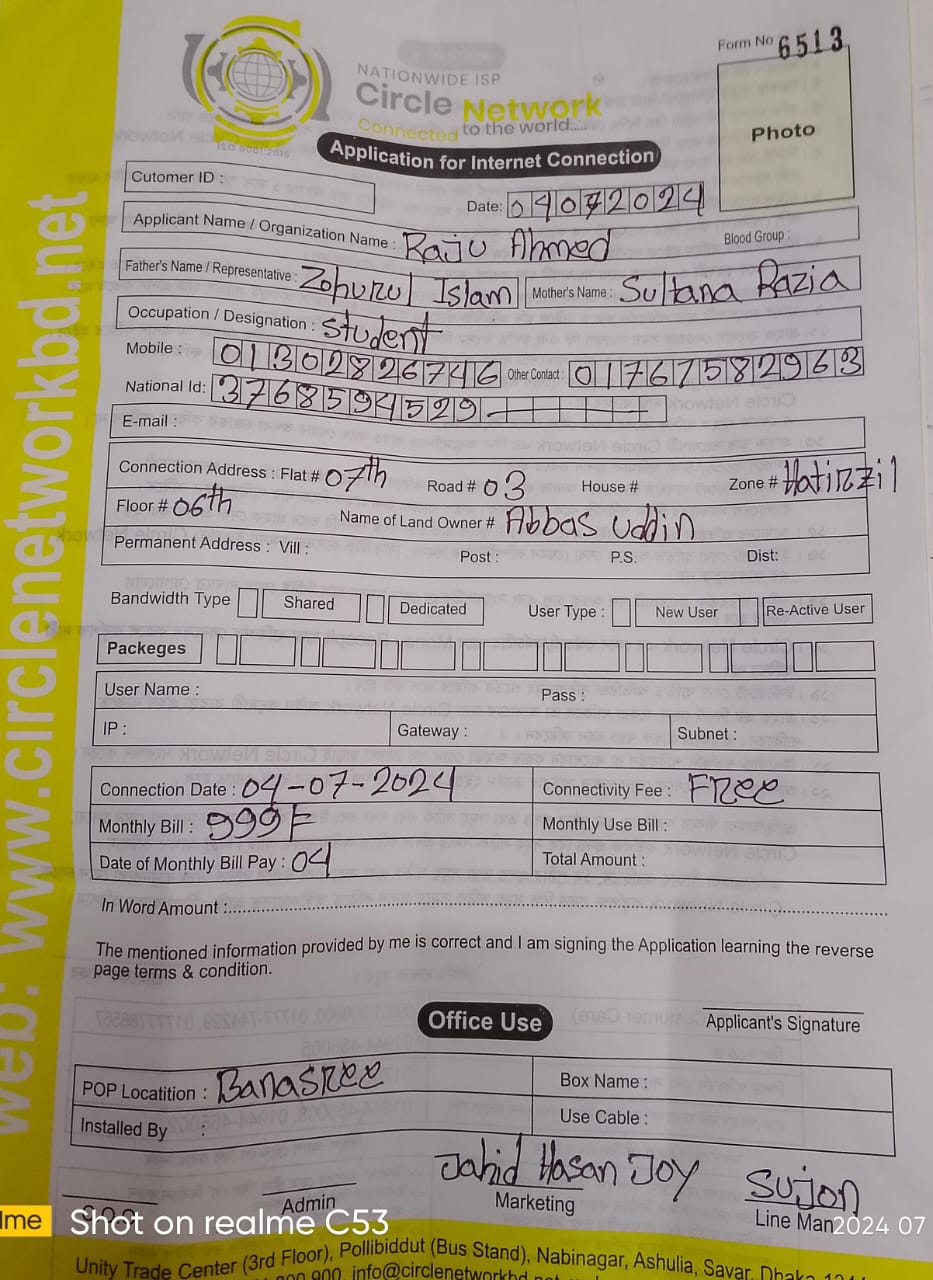 Form No 6513
NATIONWIDE ISP
Circle Network
Connected to the world.....
ISO 9001:2015
Photo
Application for Internet Connection
Cutomer ID :
Date: 04072024
Applicant Name / Organization Name : Raju Ahmed Blood Group :
Father's Name / Representative : Zohurul Islam Mother's Name : Sultana Razia
Occupation / Designation : Student
Mobile : 01302826746 Other Contact : 01767582963
National Id: 3768594529
E-mail :
Connection Address : Flat # 07th Road # 03 House # Zone # Hatirzil
Floor # 06th Name of Land Owner # Abbas Uddin
Permanent Address : Vill : Post : P.S. Dist:
Bandwidth Type Shared Dedicated User Type : New User Re-Active User
Packeges
User Name : Pass :
IP : Gateway : Subnet :
Connection Date : 04-07-2024 Connectivity Fee : Free
Monthly Bill : 999 Monthly Use Bill :
Date of Monthly Bill Pay : 04 Total Amount :
In Word Amount :
The mentioned information provided by me is correct and I am signing the Application learning the reverse
page terms & condition.
Applicant's Signature
Office Use
POP Locatition : Banasree Box Name :
Installed By : Use Cable :
Jahid Hasan Joy Sujon
Admin Marketing Line Man
web: www.circlenetworkbd.net
Shot on realme C53
2024 07
Unity Trade Center (3rd Floor), Pollibiddut (Bus Stand), Nabinagar, Ashulia, Savar, Dhaka
info@circlenetworkbd.net